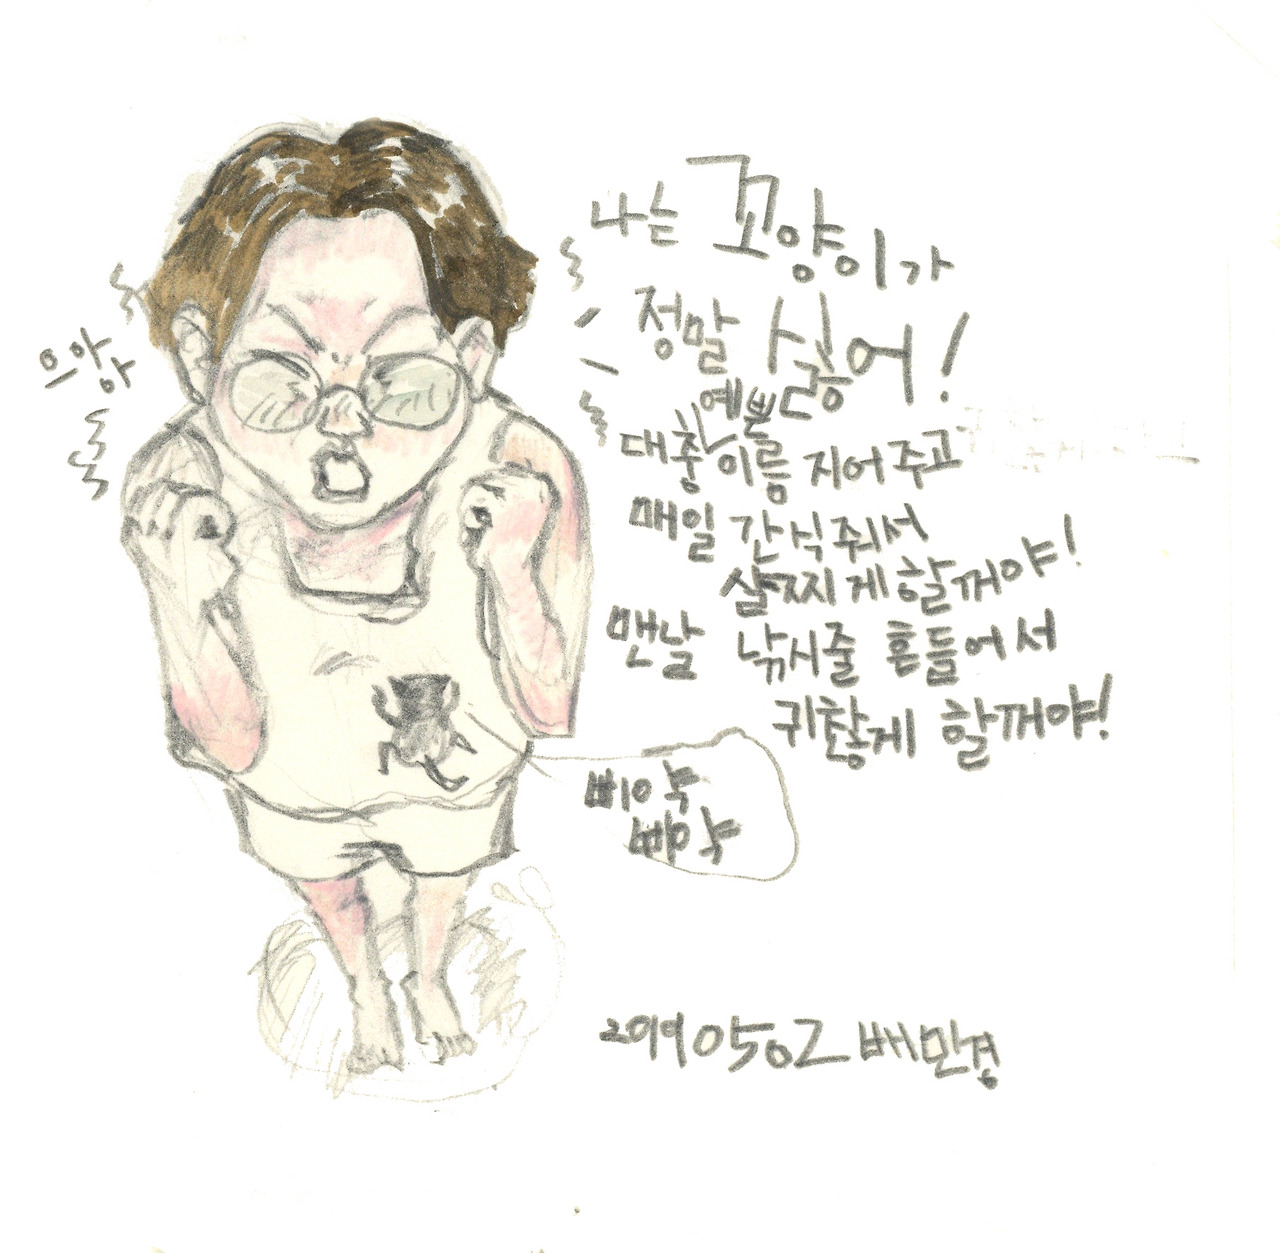 으아아
나는 꼬양이가
정말 싫어!
예쁜
대충 이름 지어주고
매일 간식줘서
살찌게할꺼야!
맨날 낚시줄 흔들어서
귀찮게 할꺼야!
삐약
삐약
20190502 배민경